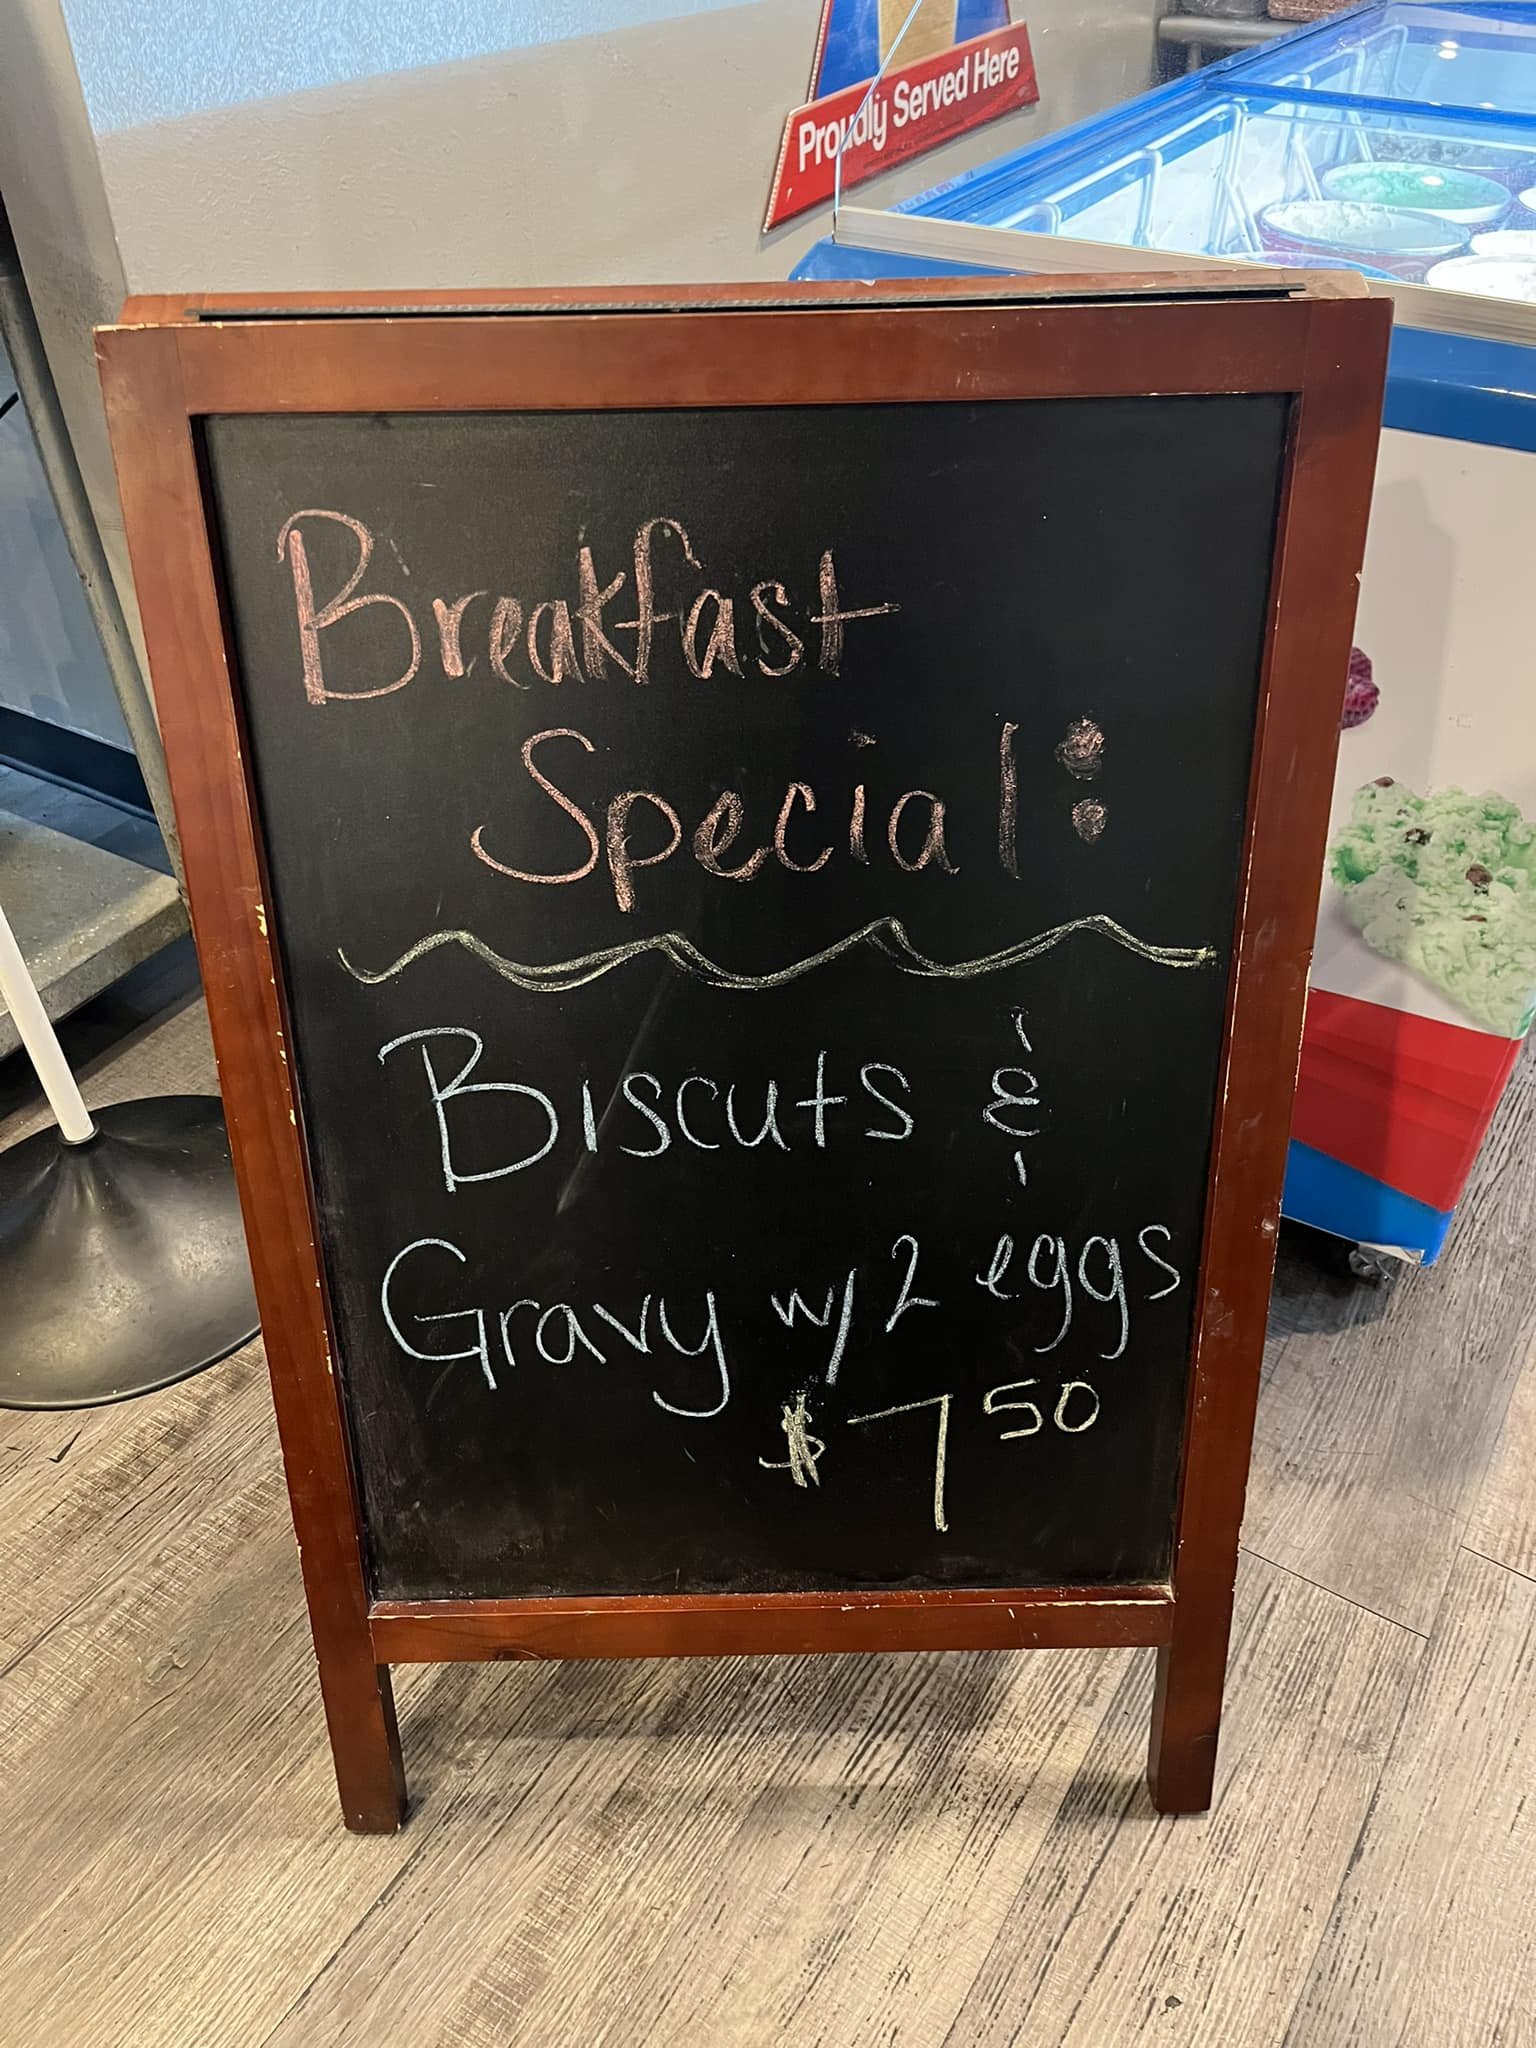 Proudly Served Here
Breakfast
Special:
Biscuts &
Gravy w/ 2 eggs
$7 50